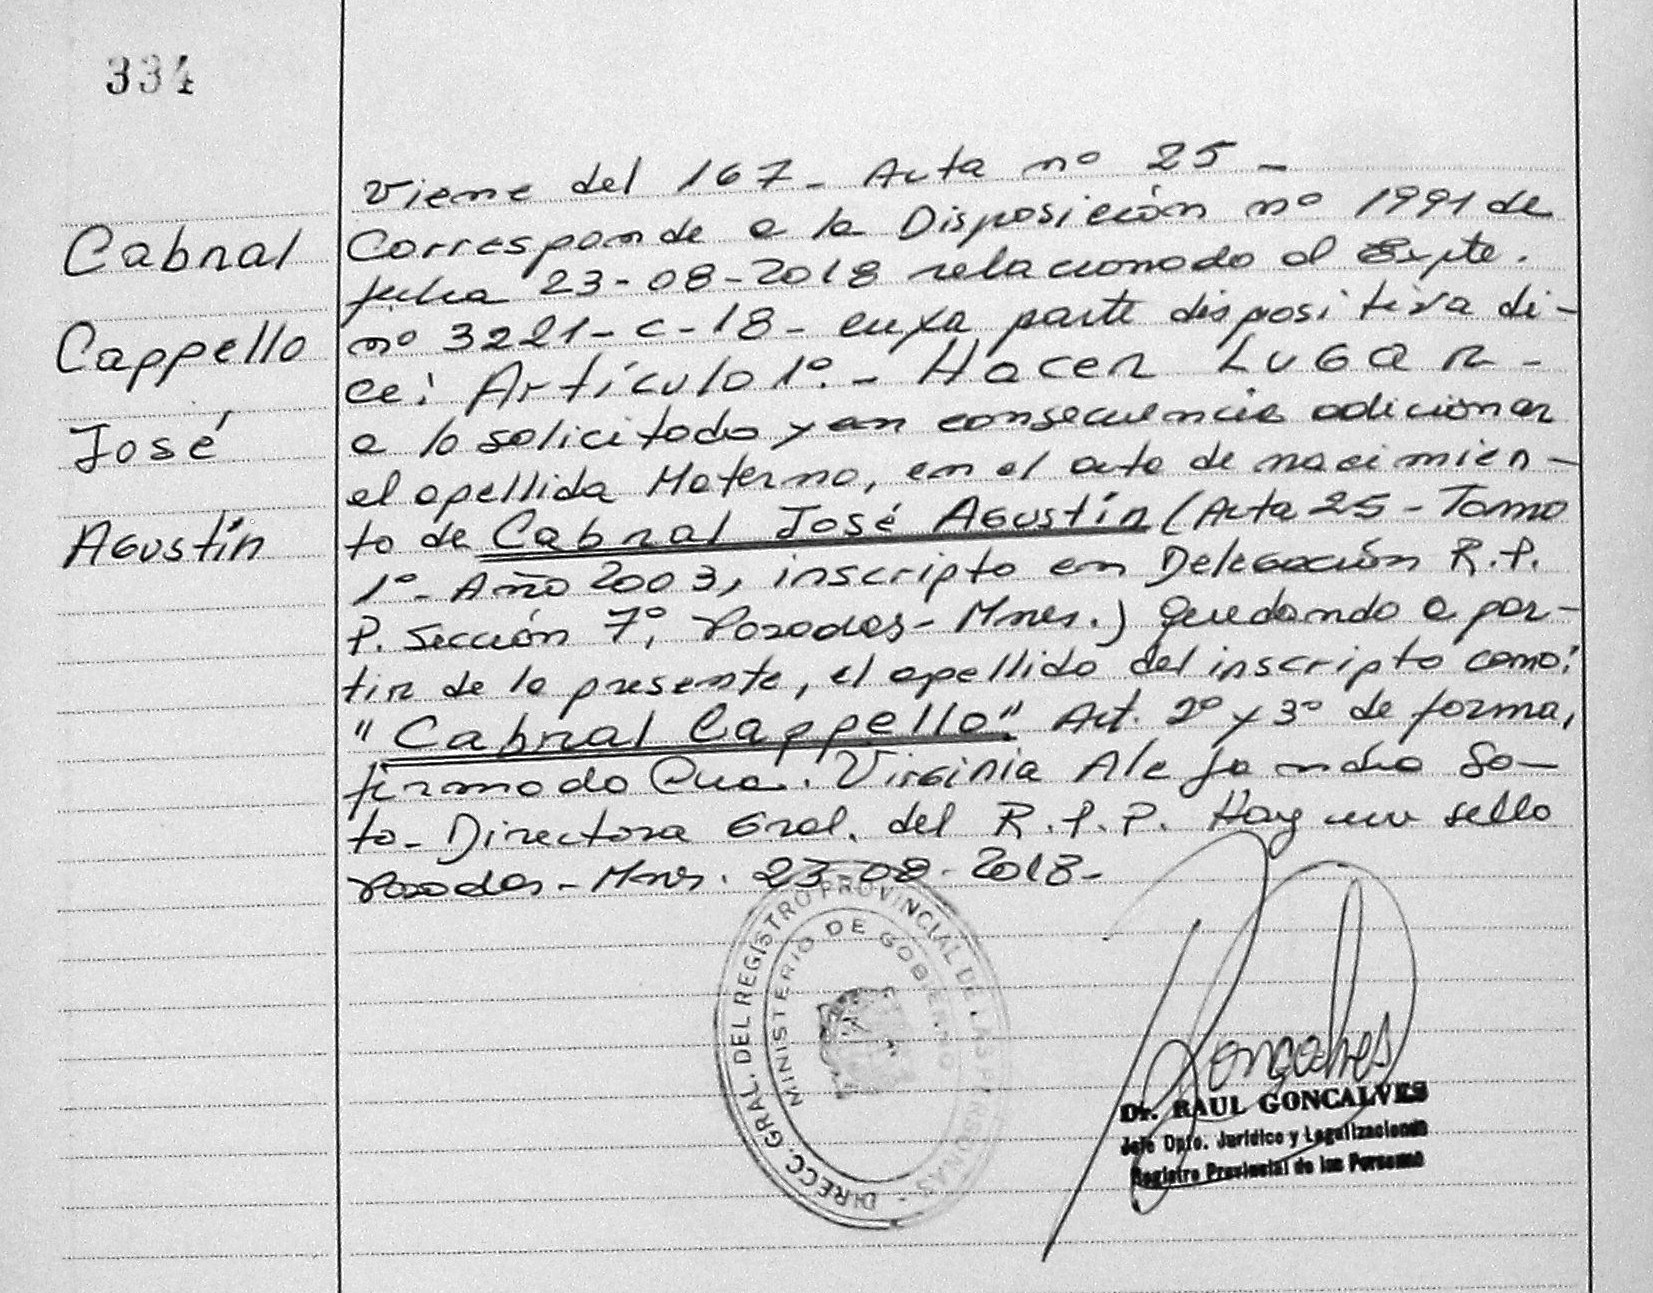 334
Cabral
Cappello
José
Agustín
Viene del 167 - Acta nº 25 -
Corresponde a la Disposición nº 1991 de
fecha 23-08-2018 relacionado al Expte.
nº 3221-C-18 - cuya parte dispositiva di-
ce: Artículo 1º.- HACER LUGAR -
a lo solicitado y en consecuencia adicionar
el apellido Materno, en el acta de nacimien-
to de Cabral José Agustín (Acta 25 - Tomo
1º - Año 2003, inscripto en Delegación R.P.
P. Sección 7º, Posadas - Mnes.) quedando a par-
tir de la presente, el apellido del inscripto como:
"Cabral Cappello". Art. 2º y 3º de forma,
firmado Cra. Virginia Alejandra So-
to - Directora Gral. del R.P.P. Hay un sello
Posadas - Mnes. 23-08-2018 -
DIRECC. GRAL. DEL REGISTRO PROVINCIAL DE LAS PERSONAS -
MINISTERIO DE GOBIERNO
Goncalves
Dr. RAUL GONCALVES
Jefe Dpto. Jurídico y Legalizaciones
Registro Provincial de las Personas